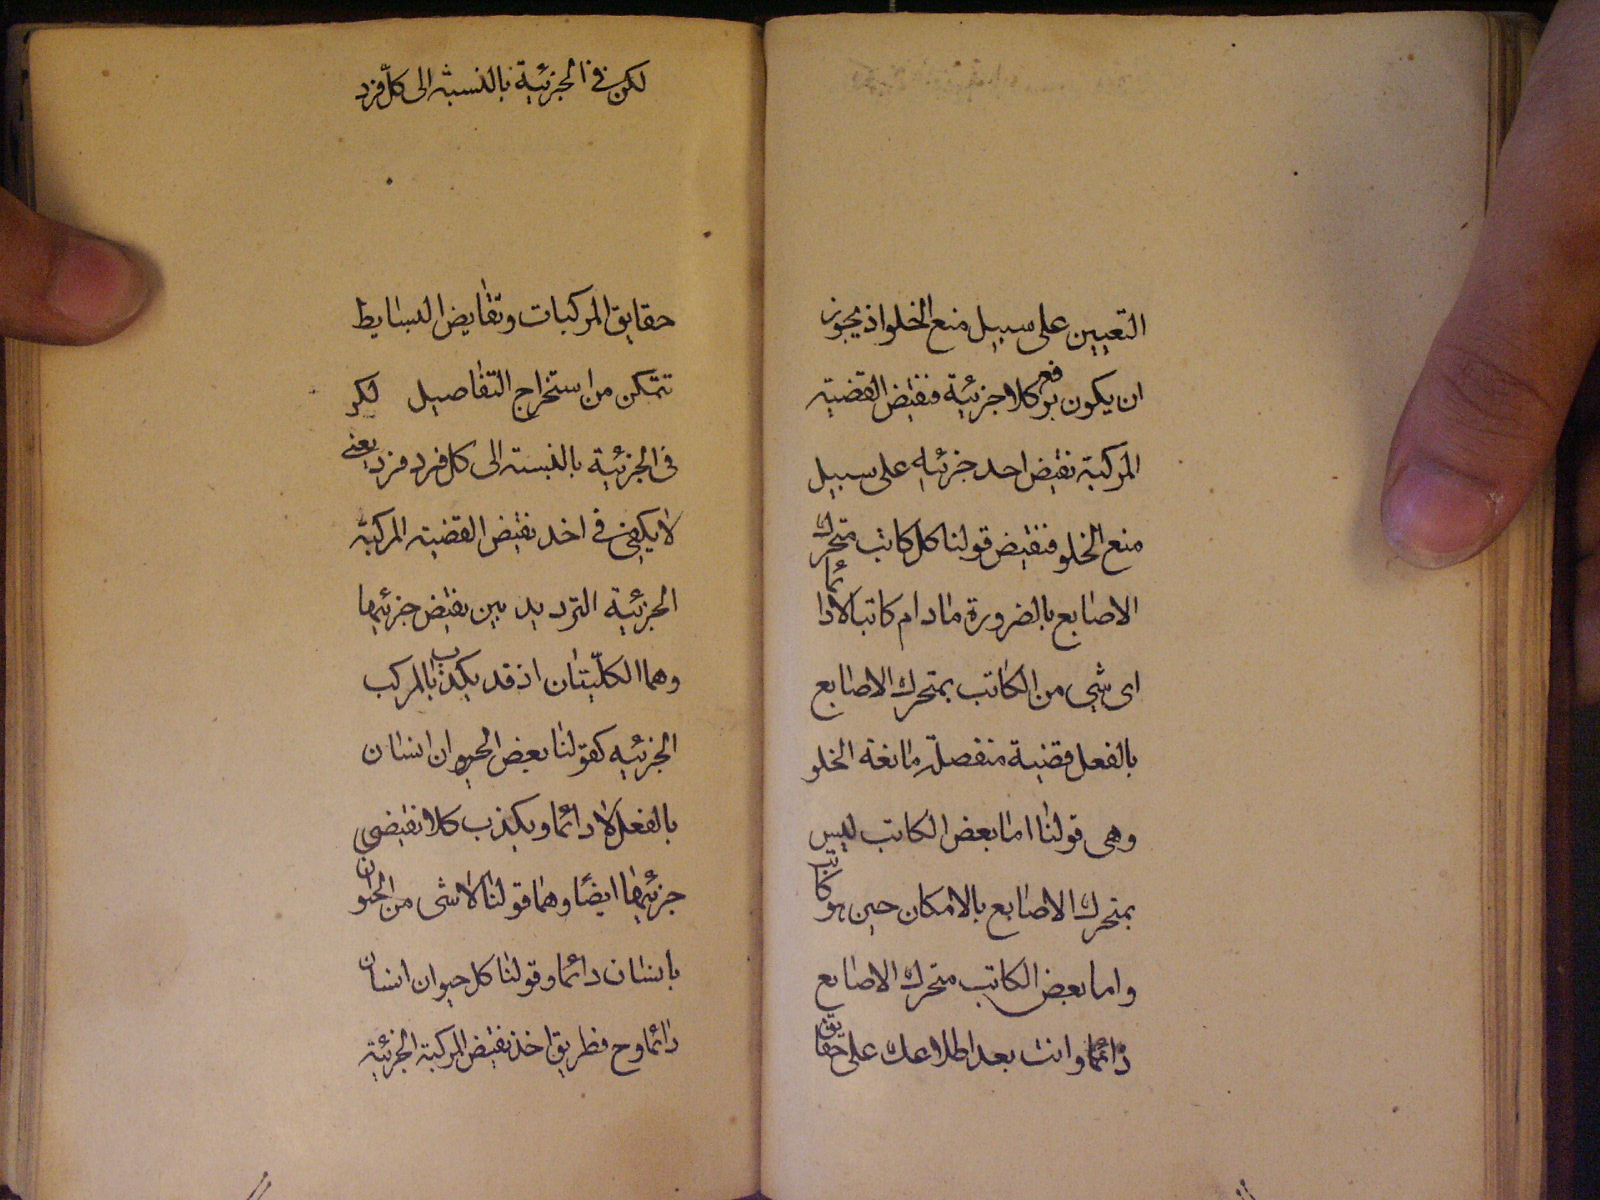 التعيين على سبيل منع الخلو اذ يجوز
ان يكون برفع كلا جزئية فنقيض القضية
المركبة نقيض احد جزئيه على سبيل
منع الخلو فنقيض قولنا كل كاتب متحرك
الاصابع بالضرورة مادام كاتبا لا دائما
اى شىء من الكاتب بمتحرك الاصابع
بالفعل قضية منفصلة مانعة الخلو
وهى قولنا اما بعض الكاتب ليس
بمتحرك الاصابع بالامكان حين هو كاتب
واما بعض الكاتب متحرك الاصابع
دائما وانت بعد اطلاعك على حقايق
لكن فى الجزئية بالنسبة الى كل فرد
حقايق المركبات ونقايض البسايط
تتمكن من استخراج التفاصيل لكن
فى الجزئية بالنسبة الى كل فرد فرد يعنى
لا يكفى فى اخذ نقيض القضية المركبة
الجزئية الترديد بين نقيض جزئيها
وهما الكليتان اذ قد يكذب المركب
الجزئيه كقولنا بعض الحيوان انسان
بالفعل لا دائما ويكذب كلا نقيضى
جزئيها ايضا وهما قولنا لا شى من الحيوان
بانسان دائما وقولنا كل حيوان انسان
دائما وح فطريق اخذ نقيض المركبة الجزئية